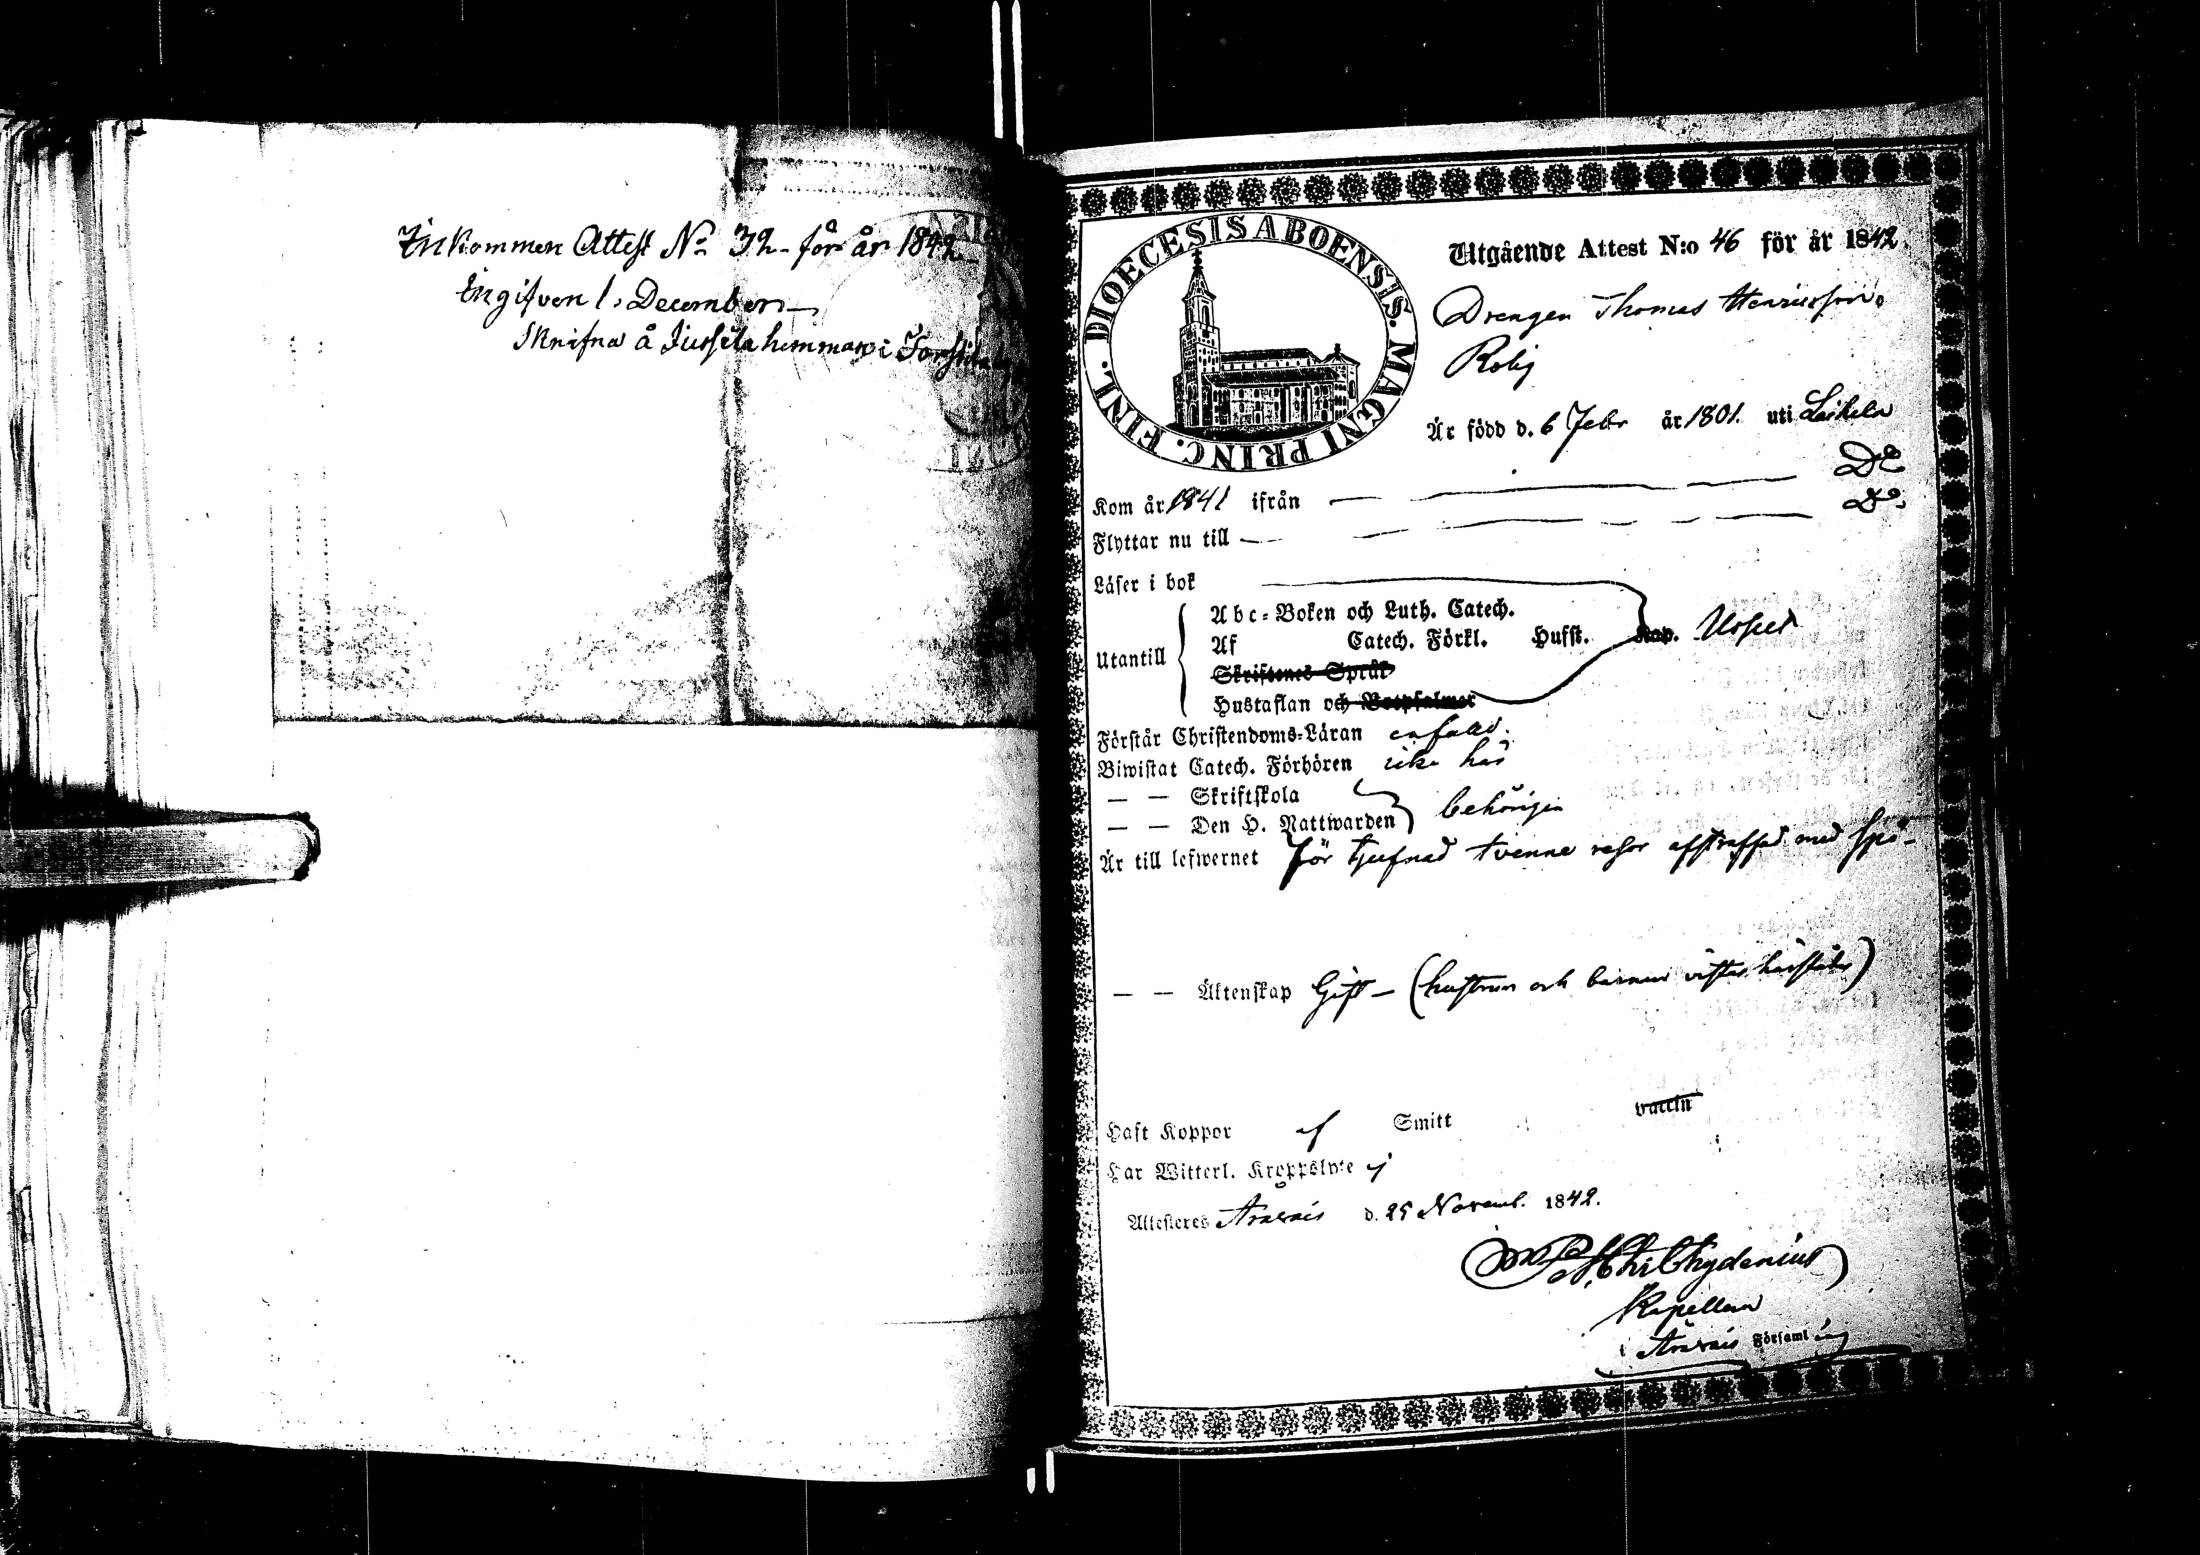 Inkommen Attest No 32 för år 1842
Ingifven 1 December
Skrifna å Jussila hemman i
DIOECESIS ABOENSIS. MAGNI PRINC. FINL.
Utgående Attest N:o 46 för år 1842.
Drengen Thomas Henricsson
Rolig
Är född d. 6 Febr år 1801. uti Laihela
Kom år 1841 ifrån — — — Do
Flyttar nu till — — — Do
Läser i bok
Utantill
Abc-Boken och Luth. Catech.
Af Catech. Förkl. Husst. Kap.
Skriftenes Språk
Hustaflan och Botpsalmer
Förstår Christendoms-Läran enfald.
Biwistat Catech. Förhören icke här
— — Skriftskola
— — Den H. Nattwarden } behörigen
Är till lefwernet För tjufnad tvenne resor afstraffad med spö-
— — Äktenskap Gift — (hustrun och barnen vistas härstädes)
Haft Koppor af Smitt vaccin
Har Witterl. Kroppslyte ej
Attesteres d. 25 Novemb. 1842.
Chydenius
Kapellan
i Församling